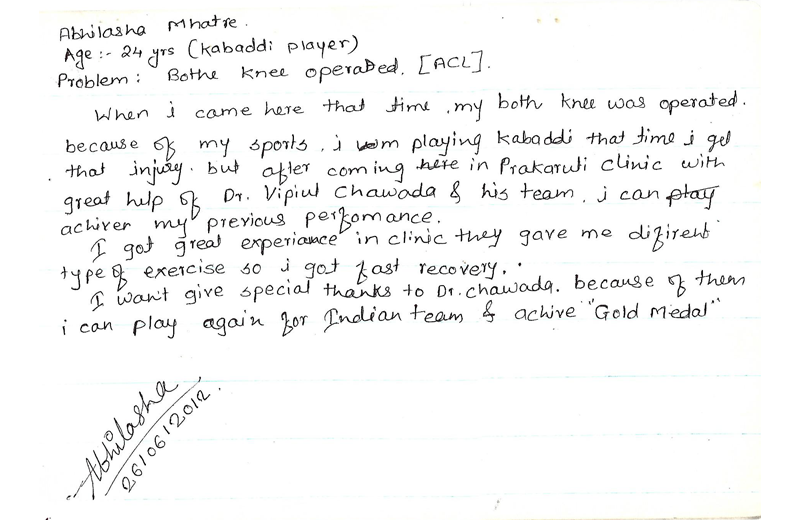 Abhilasha Mhatre.
Age :- 24 yrs (kabaddi player)
Problem : Bothe knee operated. [ACL].
When i came here that time, my both knee was operated.
because of my sports, i wom playing kabaddi that time i get
that injury. but after coming here in Prakaruti clinic with
great help of Dr. Vipiul Chawada & his team, i can play
achiver my previous perfomance.
I got great experiance in clinic they gave me difirent
type of exercise so i got fast recovery.
I want give special thanks to Dr. chawada. because of them
i can play again for Indian team & achive "Gold Medal"
Abhilasha
26/06/2012.